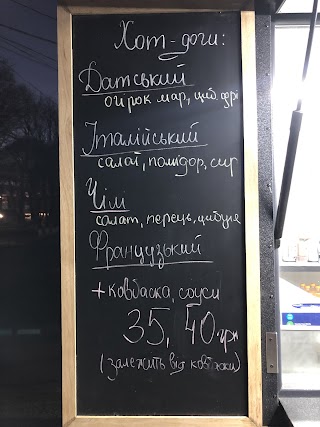 Хот-доги:
Датський
огірок мар, циб. фрі
Італійський
салат, помідор, сир
Чілі
салат, перець, цибуля
Французький
+ковбаска, соуси
35, 40 грн
(залежить від ковбаски)